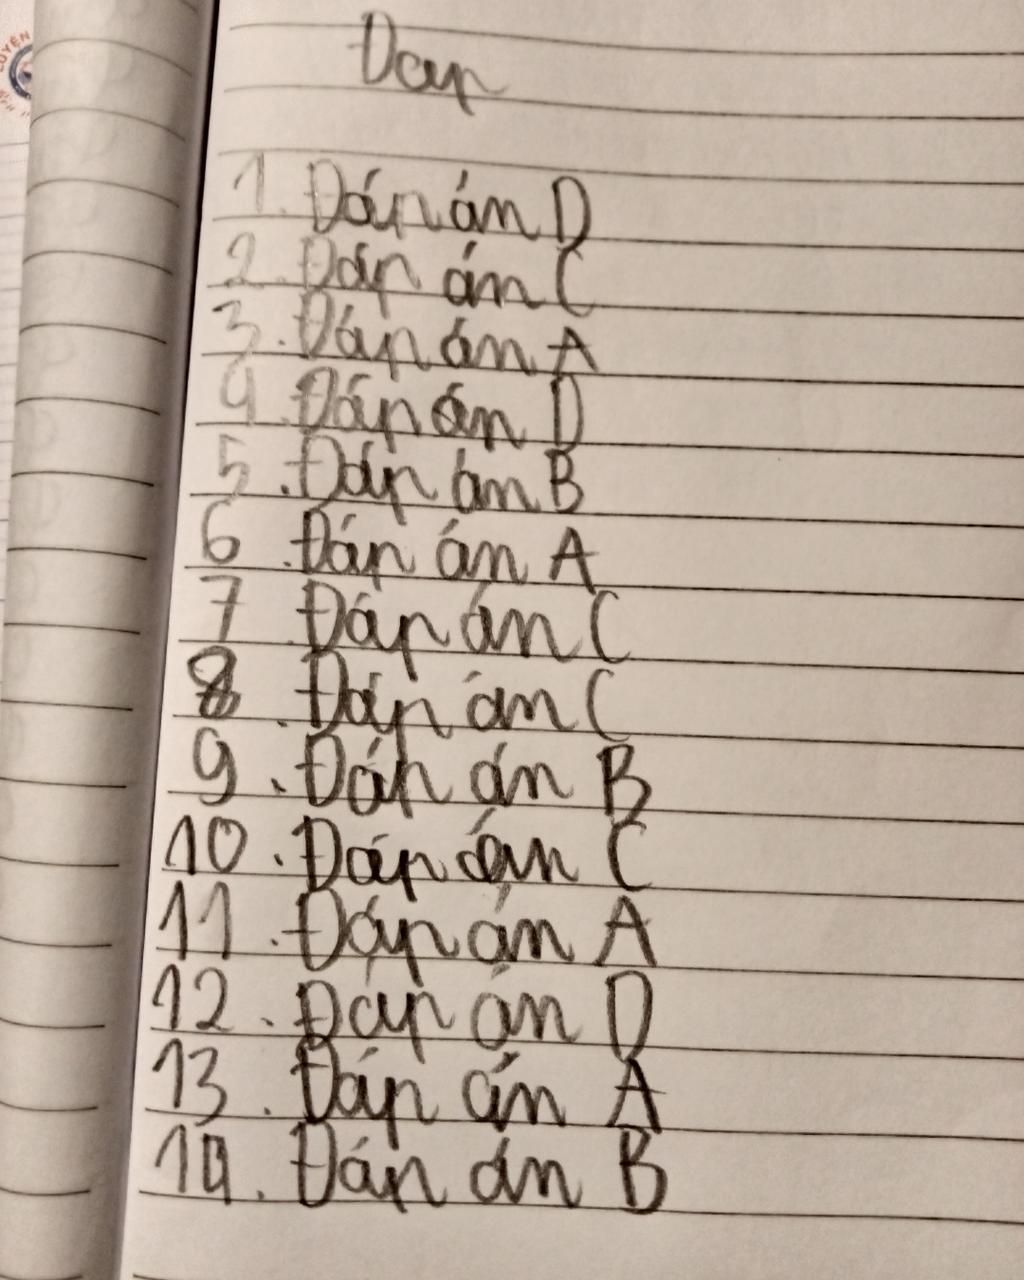 Đáp
1. Đáp án D
2. Đáp án C
3. Đáp án A
4. Đáp án D
5. Đáp án B
6. Đáp án A
7. Đáp án C
8. Đáp án C
9. Đáp án B
10. Đáp án C
11. Đáp án A
12. Đáp án D
13. Đáp án A
14. Đáp án B